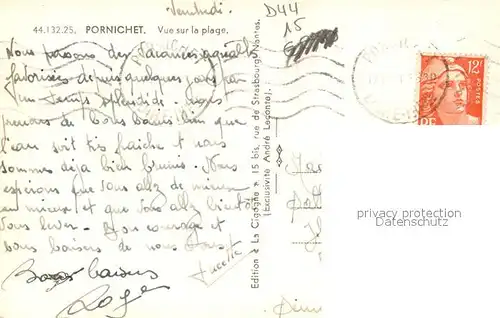 Vendredi.
D44
15
44.132.25. PORNICHET. Vue sur la plage.
Nous passons des vacances agréables
favorisées depuis quelques jours par
un temps splendide. Nous
prenons de bons bains bien que
l'eau soit très fraîche et nous
sommes déjà bien brunis. Nous
espérons que vous allez de mieux
en mieux et que vous allez bientôt
vous lever. Bon courage et
bons baisers de nous tous
Lucette
Bons baisers
Roger
Edition « La Cigogne » 15 bis, rue de Strasbourg. Nantes.
(Exclusivité André Leconte)
12F
POSTES
RF
privacy protection
Datenschutz